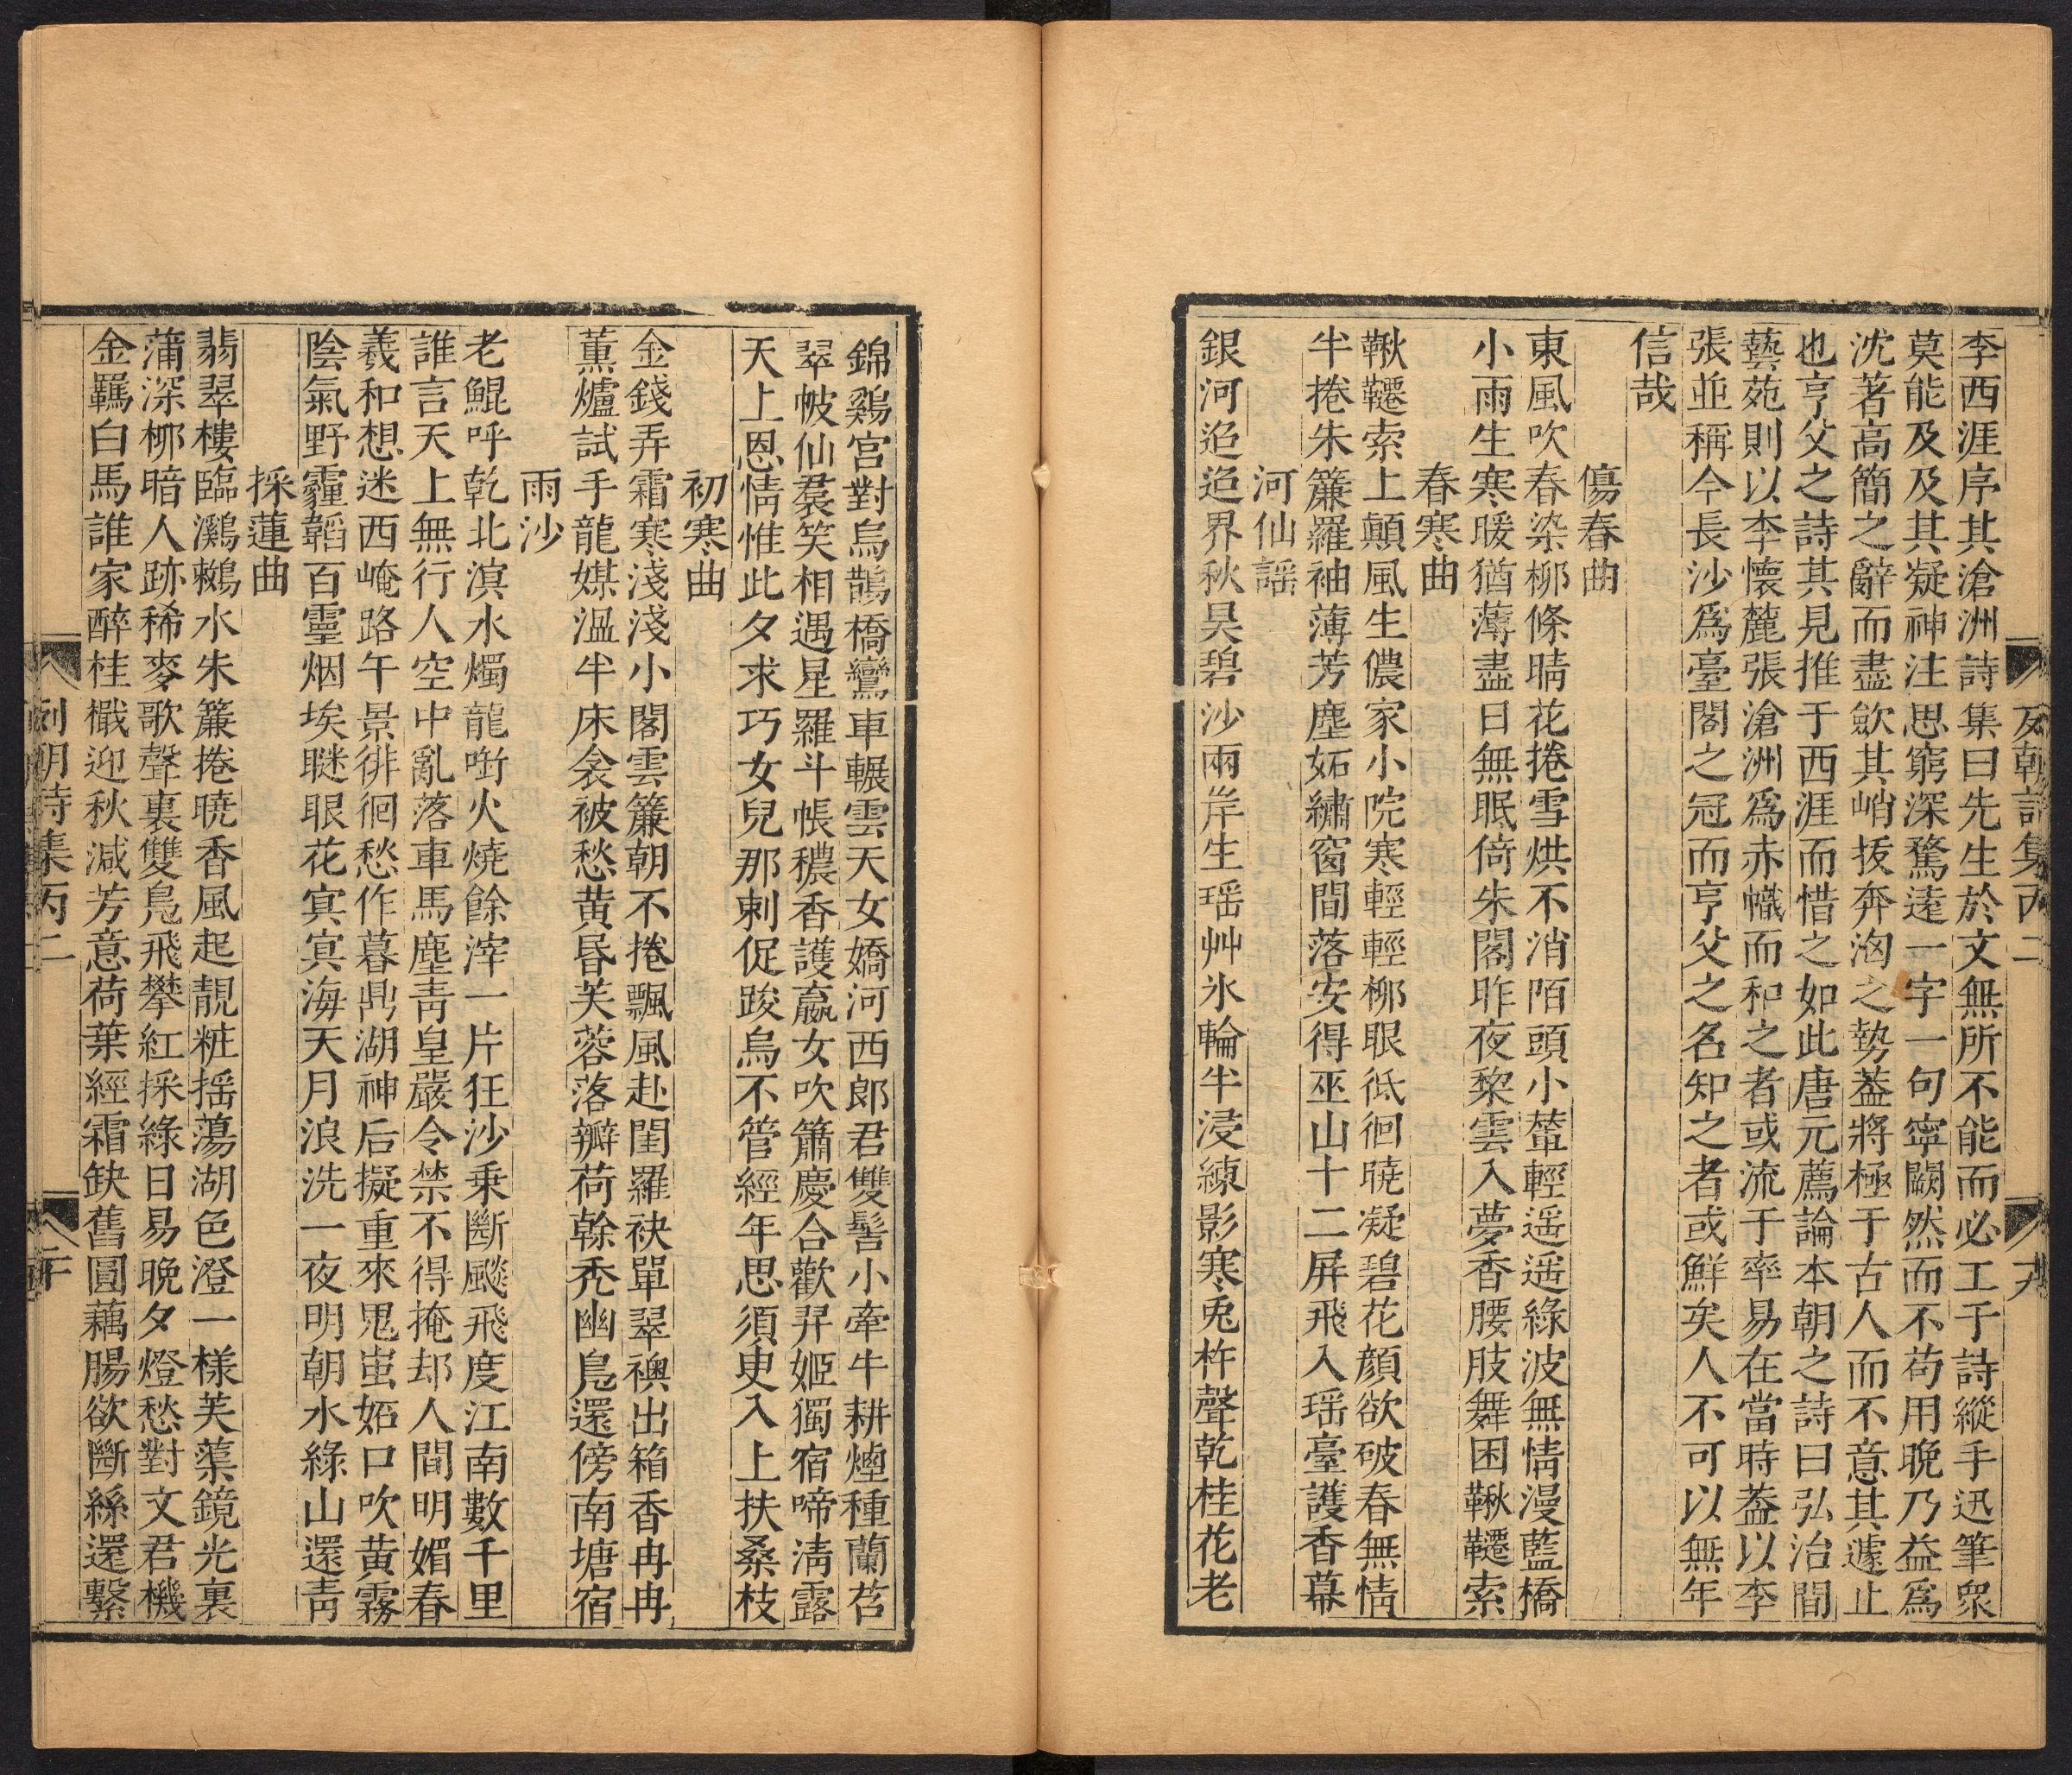 李西涯序其滄洲詩集曰先生於文無所不能而必工于詩縱手迅筆衆
莫能及及其凝神注思窮深騖遠一字一句寧闕然而不苟用晚乃益爲
沈著高簡之辭而盡歛其峭拔奔洶之勢葢將極于古人而不意其遽止
也亨父之詩其見推于西涯而惜之如此唐元薦論本朝之詩曰弘治間
藝苑則以李懷麓張滄洲爲赤幟而和之者或流于率易在當時葢以李
張並稱今長沙爲臺閣之冠而亨父之名知之者或鮮矣人不可以無年
信哉
傷春曲
東風吹春染柳條晴花捲雪烘不消陌頭小輦輕遥遥綠波無情漫藍橋
小雨生寒暖猶薄盡日無眠倚朱閣昨夜棃雲入夢香腰肢舞困鞦韆索
春寒曲
鞦韆索上顛風生儂家小院寒輕輕柳眼低徊曉凝碧花顔欲破春無情
半捲朱簾羅袖薄芳塵妬繡窗間落安得巫山十二屏飛入瑶臺護香幕
河仙謡
銀河迢迢界秋昊碧沙兩岸生瑶艸氷輪半浸練影寒兎杵聲乾桂花老
錦鷄宮對烏鵲橋鸞車輾雲天女嬌河西郎君雙髻小牽牛耕煙種蘭苕
翠帔仙裠笑相遇星羅斗帳穠香護嬴女吹簫慶合歡羿姬獨宿啼清露
天上恩情惟此夕求巧女兒那剌促踆烏不管經年思須㬰入上扶桑枝
初寒曲
金錢弄霜寒淺淺小閣雲簾朝不捲飄風赴閨羅袂單翠襖出箱香冉冉
薰爐試手龍媒温半床衾被愁黄昏芙蓉落瓣荷榦禿幽鳧還傍南塘宿
雨沙
老鯤呼乾北溟水燭龍㗫火燒餘滓一片狂沙乗斷颷飛度江南數千里
誰言天上無行人空中亂落車馬塵靑皇嚴令禁不得掩却人間明媚春
羲和想迷西崦路午景徘徊愁作暮鼎湖神后擬重來鬼蚩妬口吹黄霧
陰氣野霾韜百靈烟埃瞇眼花㝠㝠海天月浪洗一夜明朝水綠山還靑
採蓮曲
翡翠樓臨鸂鶒水朱簾捲曉香風起靚粧揺蕩湖色澄一様芙蕖鏡光裏
蒲深柳暗人跡稀麥歌聲裏雙鳧飛攀紅採綠日易晚夕燈愁對文君機
金羈白馬誰家醉桂檝迎秋減芳意荷葉經霜缺舊圓藕腸欲斷絲還繫
列朝詩集丙二
二十